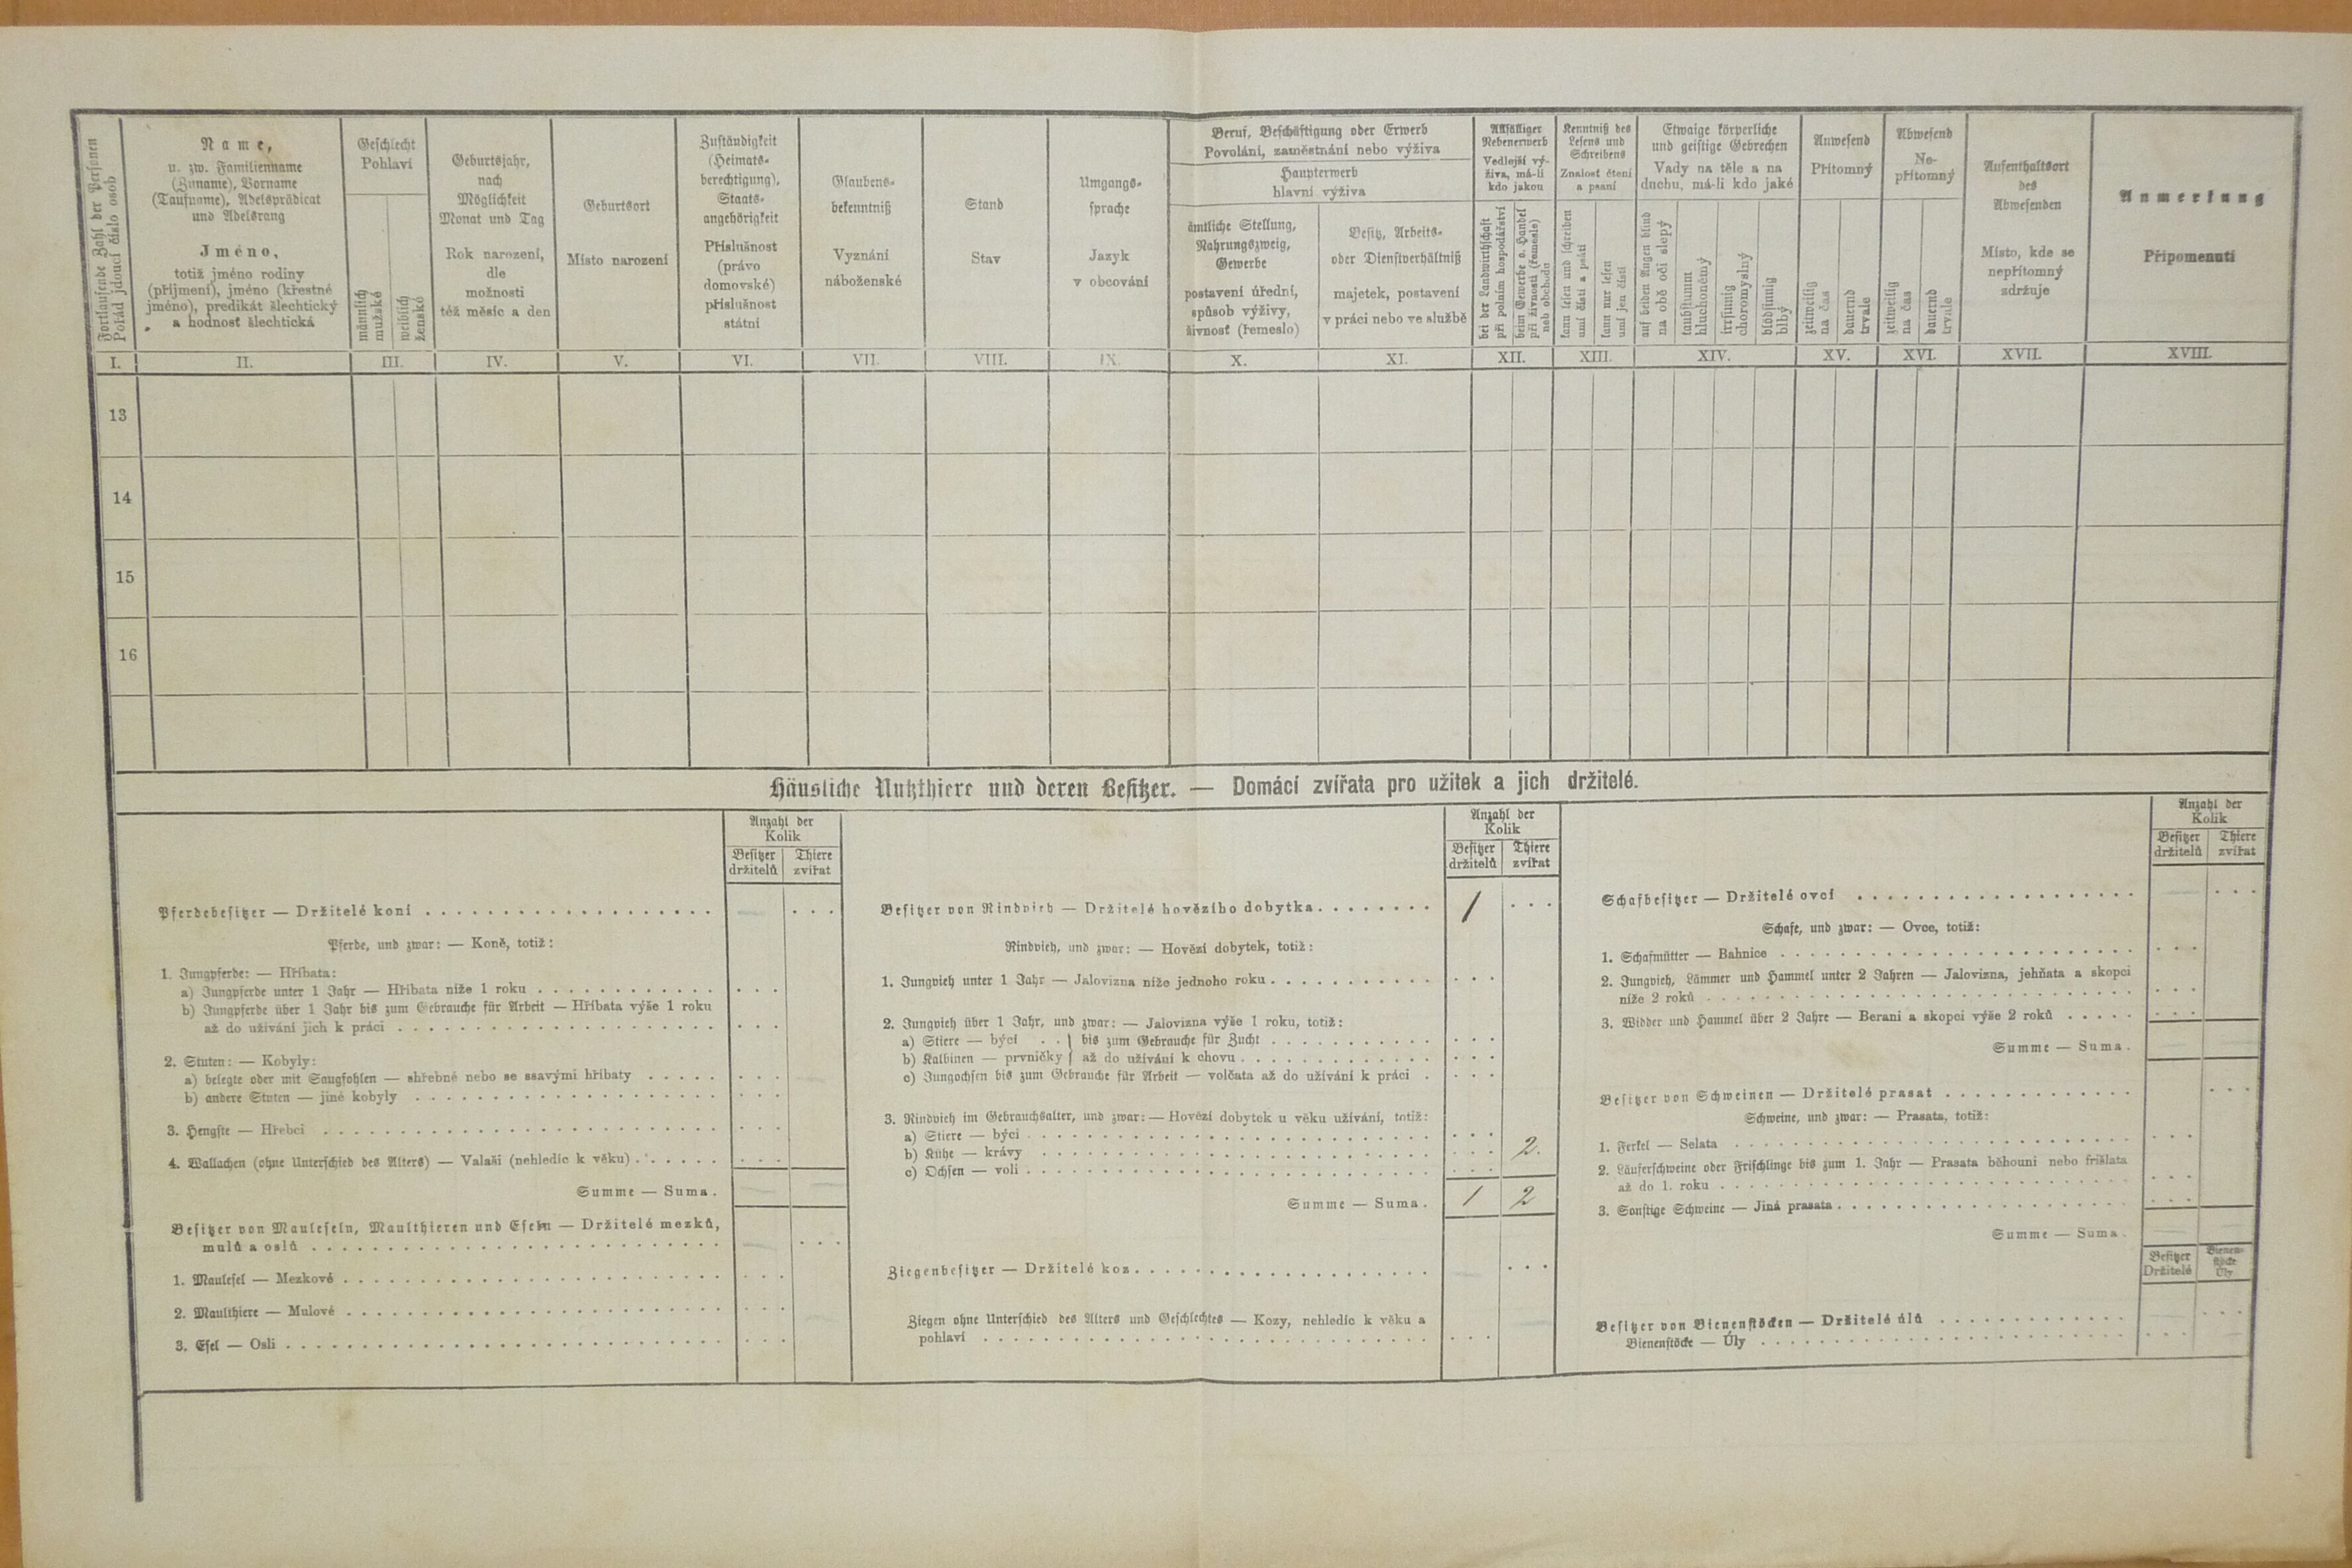 Fortlaufende Zahl der Personen
Pořád jdoucí číslo osob
Name,
u. zw. Familienname
(Zuname), Vorname
(Taufname), Adelsprädicat
und Adelsrang
Jméno,
totiž jméno rodiny
(příjmení), jméno (křestné
jméno), predikát šlechtický
a hodnost šlechtická
Geschlecht
Pohlaví
männlich
mužské
weiblich
ženské
Geburtsjahr,
nach
Möglichkeit
Monat und Tag
Rok narození,
dle
možnosti
též měsíc a den
Geburtsort
Místo narození
Zuständigkeit
(Heimats-
berechtigung),
Staats-
angehörigkeit
Příslušnost
(právo
domovské)
příslušnost
státní
Glaubens-
bekenntniß
Vyznání
náboženské
Stand
Stav
Umgangs-
sprache
Jazyk
v obcování
Beruf, Beschäftigung oder Erwerb
Povolání, zaměstnání nebo výživa
Haupterwerb
hlavní výživa
ämtliche Stellung,
Nahrungszweig,
Gewerbe
postavení úřední,
spůsob výživy,
živnosť (řemeslo)
Besitz, Arbeits-
oder Dienstverhältniß
majetek, postavení
v práci nebo ve službě
Allfälliger
Nebenerwerb
Vedlejší vý-
živa, má-li
kdo jakou
bei der Landwirthschaft
při polním hospodářství
beim Gewerbe o. Handel
při živnosti (řemesle)
neb obchodu
Kenntniß des
Lesens und
Schreibens
Znalost čtení
a psaní
kann lesen und schreiben
umí čísti a psáti
kann nur lesen
umí jen čísti
Etwaige körperliche
und geistige Gebrechen
Vady na těle a na
duchu, má-li kdo jaké
auf beiden Augen blind
na obě oči slepý
taubstumm
hluchoněmý
irrsinnig
choromyslný
blödsinnig
blbý
Anwesend
Přítomný
zeitweilig
na čas
dauernd
trvale
Abwesend
Ne-
přítomný
zeitweilig
na čas
dauernd
trvale
Aufenthaltsort
des
Abwesenden
Místo, kde se
nepřítomný
zdržuje
Anmerkung
Připomenutí
I. II. III. IV. V. VI. VII. VIII. IX. X. XI. XII. XIII. XIV. XV. XVI. XVII. XVIII.
13
14
15
16
Häusliche Nutzthiere und deren Besitzer. — Domácí zvířata pro užitek a jich držitelé.
Anzahl der
Kolik
Besitzer Thiere
držitelů zvířat
Pferdebesitzer — Držitelé koní
Pferde, und zwar: — Koně, totiž:
1. Jungpferde: — Hříbata:
a) Jungpferde unter 1 Jahr — Hříbata níže 1 roku
b) Jungpferde über 1 Jahr bis zum Gebrauche für Arbeit — Hříbata výše 1 roku
až do užívání jich k práci
2. Stuten: — Kobyly:
a) belegte oder mit Saugfohlen — shřebné nebo se ssavými hříbaty
b) andere Stuten — jiné kobyly
3. Hengste — Hřebci
4. Wallachen (ohne Unterschied des Alters) — Valaši (nehledíc k věku)
Summe — Suma.
Besitzer von Mauleseln, Maulthieren und Eseln — Držitelé mezků,
mulů a oslů
1. Maulesel — Mezkové
2. Maulthiere — Mulové
3. Esel — Osli
Anzahl der
Kolik
Besitzer Thiere
držitelů zvířat
Besitzer von Rindvieh — Držitelé hovězího dobytka 1
Rindvieh, und zwar: — Hovězí dobytek, totiž:
1. Jungvieh unter 1 Jahr — Jalovizna níže jednoho roku
2. Jungvieh über 1 Jahr, und zwar: — Jalovizna výše 1 roku, totiž:
a) Stiere — býci } bis zum Gebrauche für Zucht
b) Kalbinen — prvničky } až do užívání k chovu
c) Jungochsen bis zum Gebrauche für Arbeit — volčata až do užívání k práci
3. Rindvieh im Gebrauchsalter, und zwar: — Hovězí dobytek u věku užívání, totiž:
a) Stiere — býci
b) Kühe — krávy 2.
c) Ochsen — voli
Summe — Suma. 1 2
Ziegenbesitzer — Držitelé koz
Ziegen ohne Unterschied des Alters und Geschlechtes — Kozy, nehledíc k věku a
pohlaví
Anzahl der
Kolik
Besitzer Thiere
držitelů zvířat
Schafbesitzer — Držitelé ovcí
Schafe, und zwar: — Ovce, totiž:
1. Schafmütter — Bahnice
2. Jungvieh, Lämmer und Hammel unter 2 Jahren — Jalovizna, jehňata a skopci
níže 2 roků
3. Widder und Hammel über 2 Jahre — Berani a skopci výše 2 roků
Summe — Suma.
Besitzer von Schweinen — Držitelé prasat
Schweine, und zwar: — Prasata, totiž:
1. Ferkel — Selata
2. Läuferschweine oder Frischlinge bis zum 1. Jahr — Prasata běhouni nebo frišlata
až do 1. roku
3. Sonstige Schweine — Jiná prasata
Summe — Suma.
Besitzer Bienen-
stöcke
Držitelé Úly
Besitzer von Bienenstöcken — Držitelé úlů
Bienenstöcke — Úly